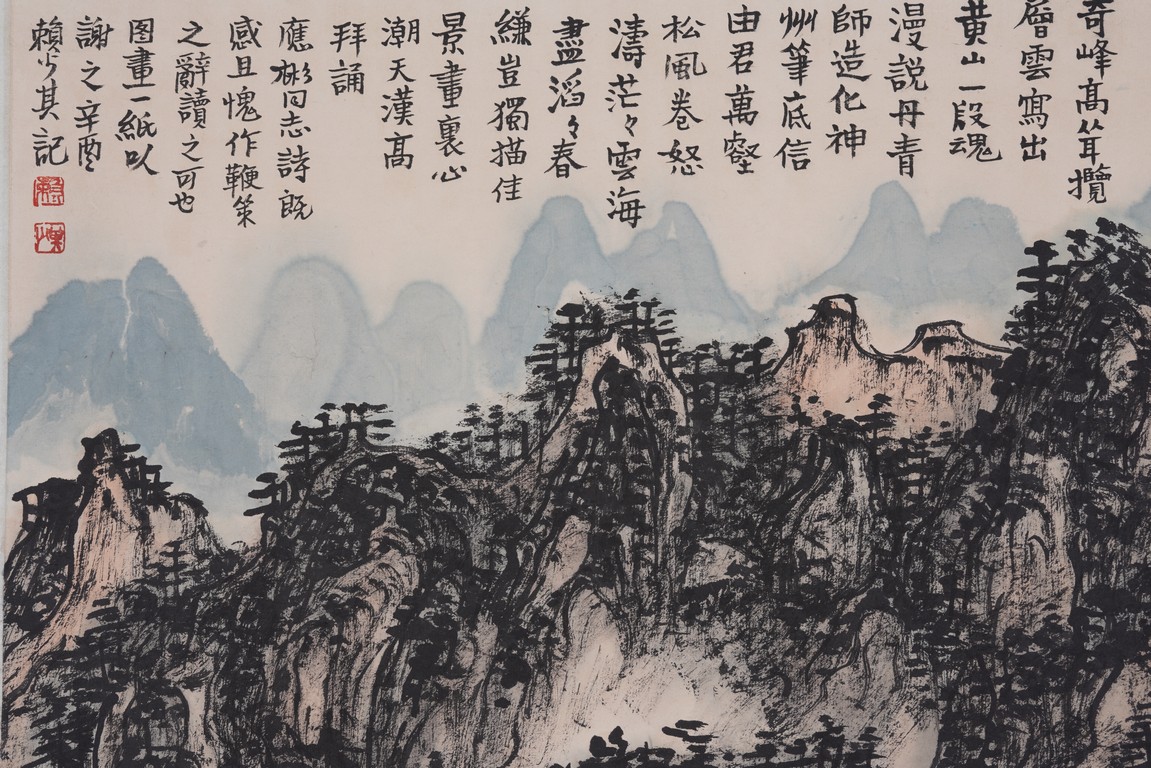 奇峰髙耸攬
層雲寫出
黄山一段魂
漫説丹青
師造化神
州筆底信
由君萬壑
松風卷怒
濤茫々雲海
盡滔々春
縑豈獨描佳
景畫裏心
潮天漢高
拜誦
應彬同志詩既
感且愧作鞭策
之辭讀之可也
图畫一紙以
謝之辛酉
賴少其記